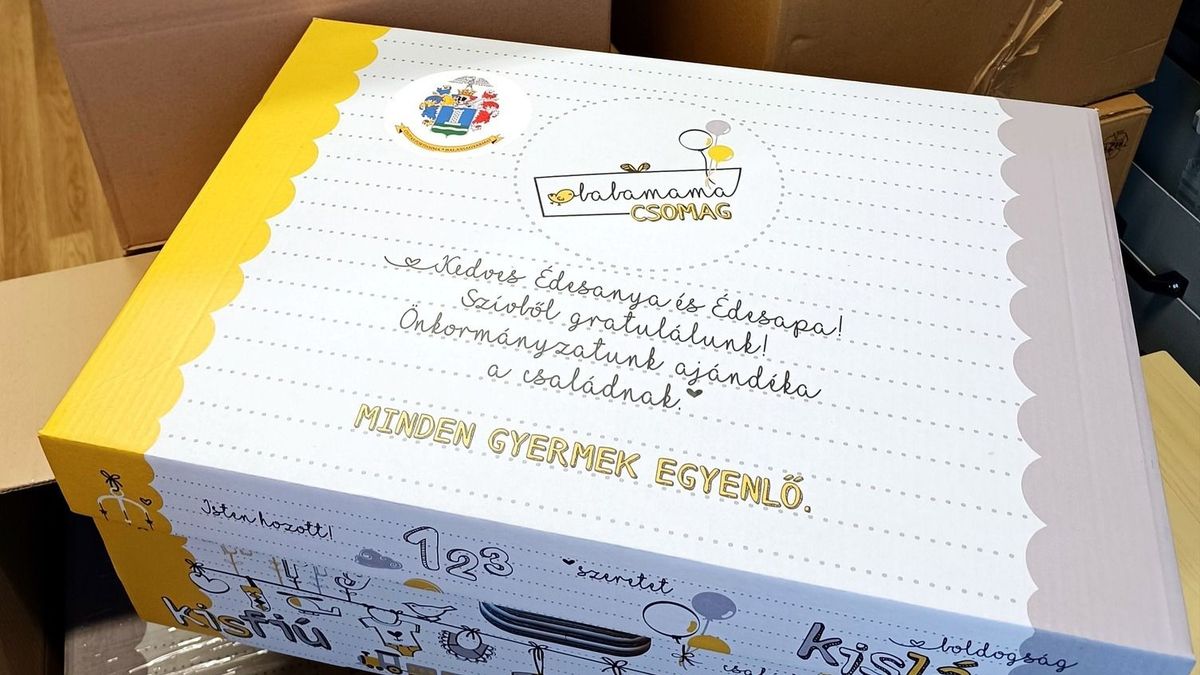 babamama
CSOMAG
Kedves Édesanya és Édesapa!
Szívből gratulálunk!
Önkormányzatunk ajándéka
a családnak.
MINDEN GYERMEK EGYENLŐ.
Isten hozott!
123
szeretet
kisfiú
boldogság